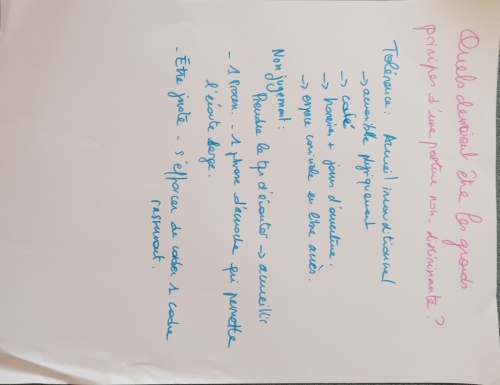 Quels devraient être les grands
principes d'une posture non-discriminante ?
Tolérance : Accueil inconditionnel
→ accessible physiquement
→ café
→ horaires + jours d'ouverture.
→ espace conviviale en libre accès.
Non jugement :
Prendre le tps d'écouter → accueillir
- 1 - 1 phrase d'accroche qui permette
l'écoute large.
- Être juste - s'efforcer de 1 cadre